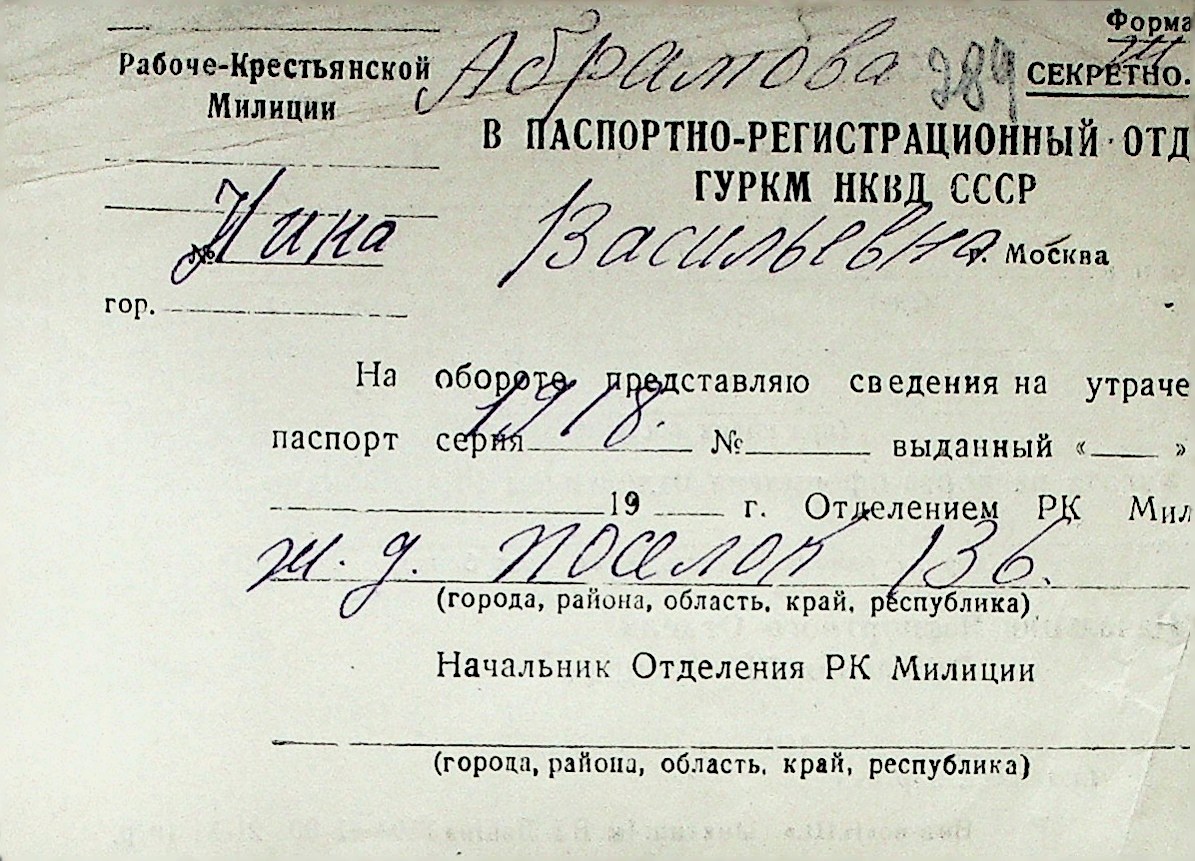 Форма
Рабоче-Крестьянской
Милиции
Абрамова 289
СЕКРЕТНО.
В ПАСПОРТНО-РЕГИСТРАЦИОННЫЙ ОТД
ГУРКМ НКВД СССР
№ Нина Васильевна г. Москва
гор.
На обороте представляю сведения на утраче
паспорт серия 1918. № выданный « »
19 г. Отделением РК Мил
ж. д. поселок 136.
(города, района, область, край, республика)
Начальник Отделения РК Милиции
(города, района, область, край, республика)